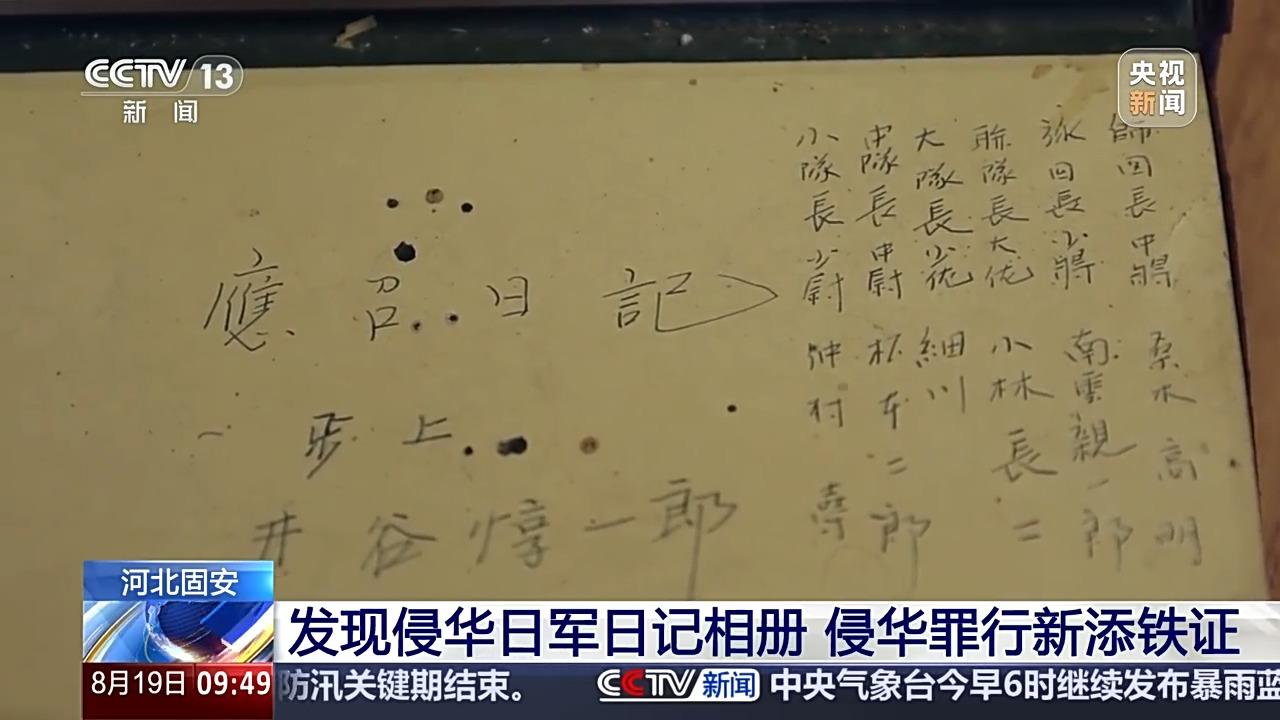 CCTV 13
新闻
央视
新闻
師団長中將 桑木高明
旅団長少將 南雲親一郎
聯隊長大佐 小林長二
大隊長少佐 細川
中隊長中尉 杉本二郎
小隊長少尉 沖村
應召日記
一歩上
井谷惇一郎
河北固安
发现侵华日军日记相册 侵华罪行新添铁证
8月19日 09:49
防汛关键期结束。 CCTV新闻 中央气象台今早6时继续发布暴雨蓝